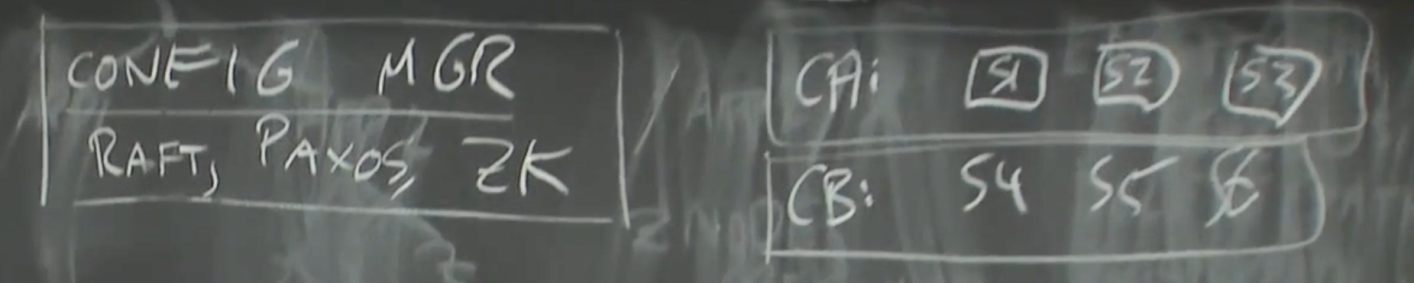 CONFIG MGR
RAFT, PAXOS, ZK
CA: S1 S2 S3
CB: S4 S5 S6